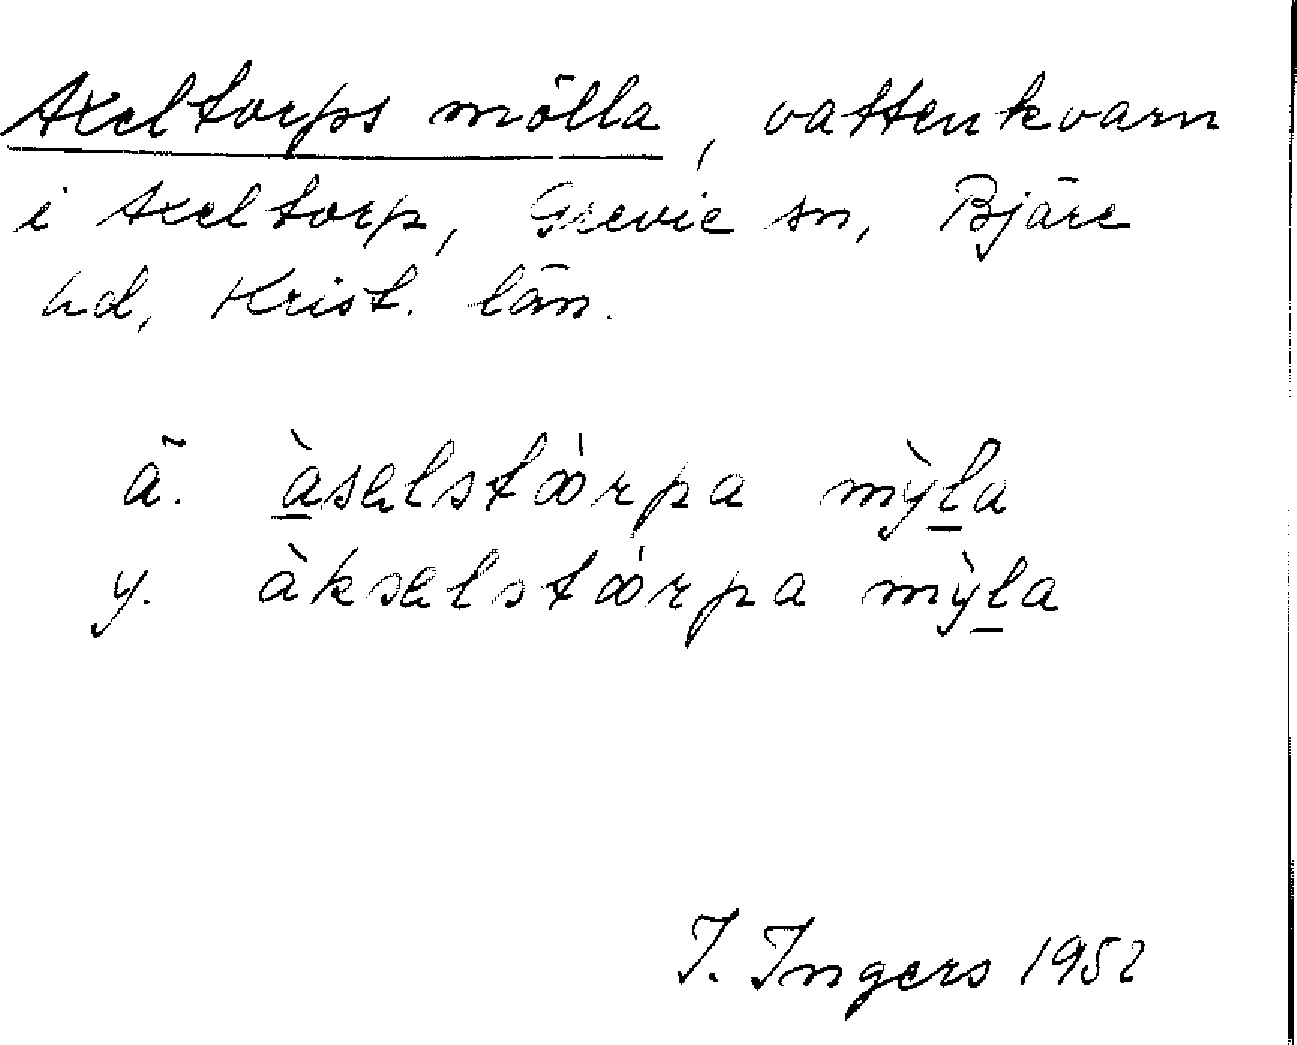 Axeltorps mölla, vattenkvarn
i Axeltorp, Grevie sn, Bjäre
hd, Krist. län.
ä. àsəlstꝏ́rpa mỳla
y. àksəlstꝏ́rpa mỳla
I. Ingers 1952